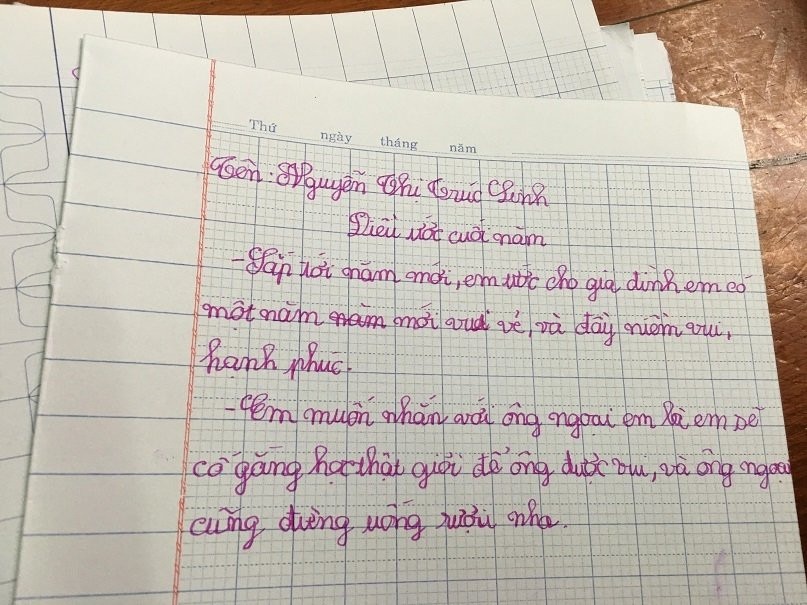 Thứ ngày tháng năm
Tên: Nguyễn Thị Trúc Linh
Điều ước cuối năm
- Sắp tới năm mới, em ước cho gia đình em có
một năm năm mới vui vẻ, và đầy niềm vui,
hạnh phúc.
- Em muốn nhắn với ông ngoại em là em sẽ
cố gắng học thật giỏi để ông được vui, và ông ngoại
cũng đừng uống rượu nha.